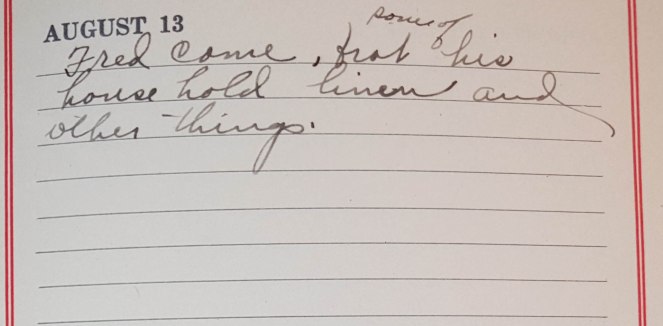 AUGUST 13
some of
Fred Came, brot his
house hold linen and
other things.